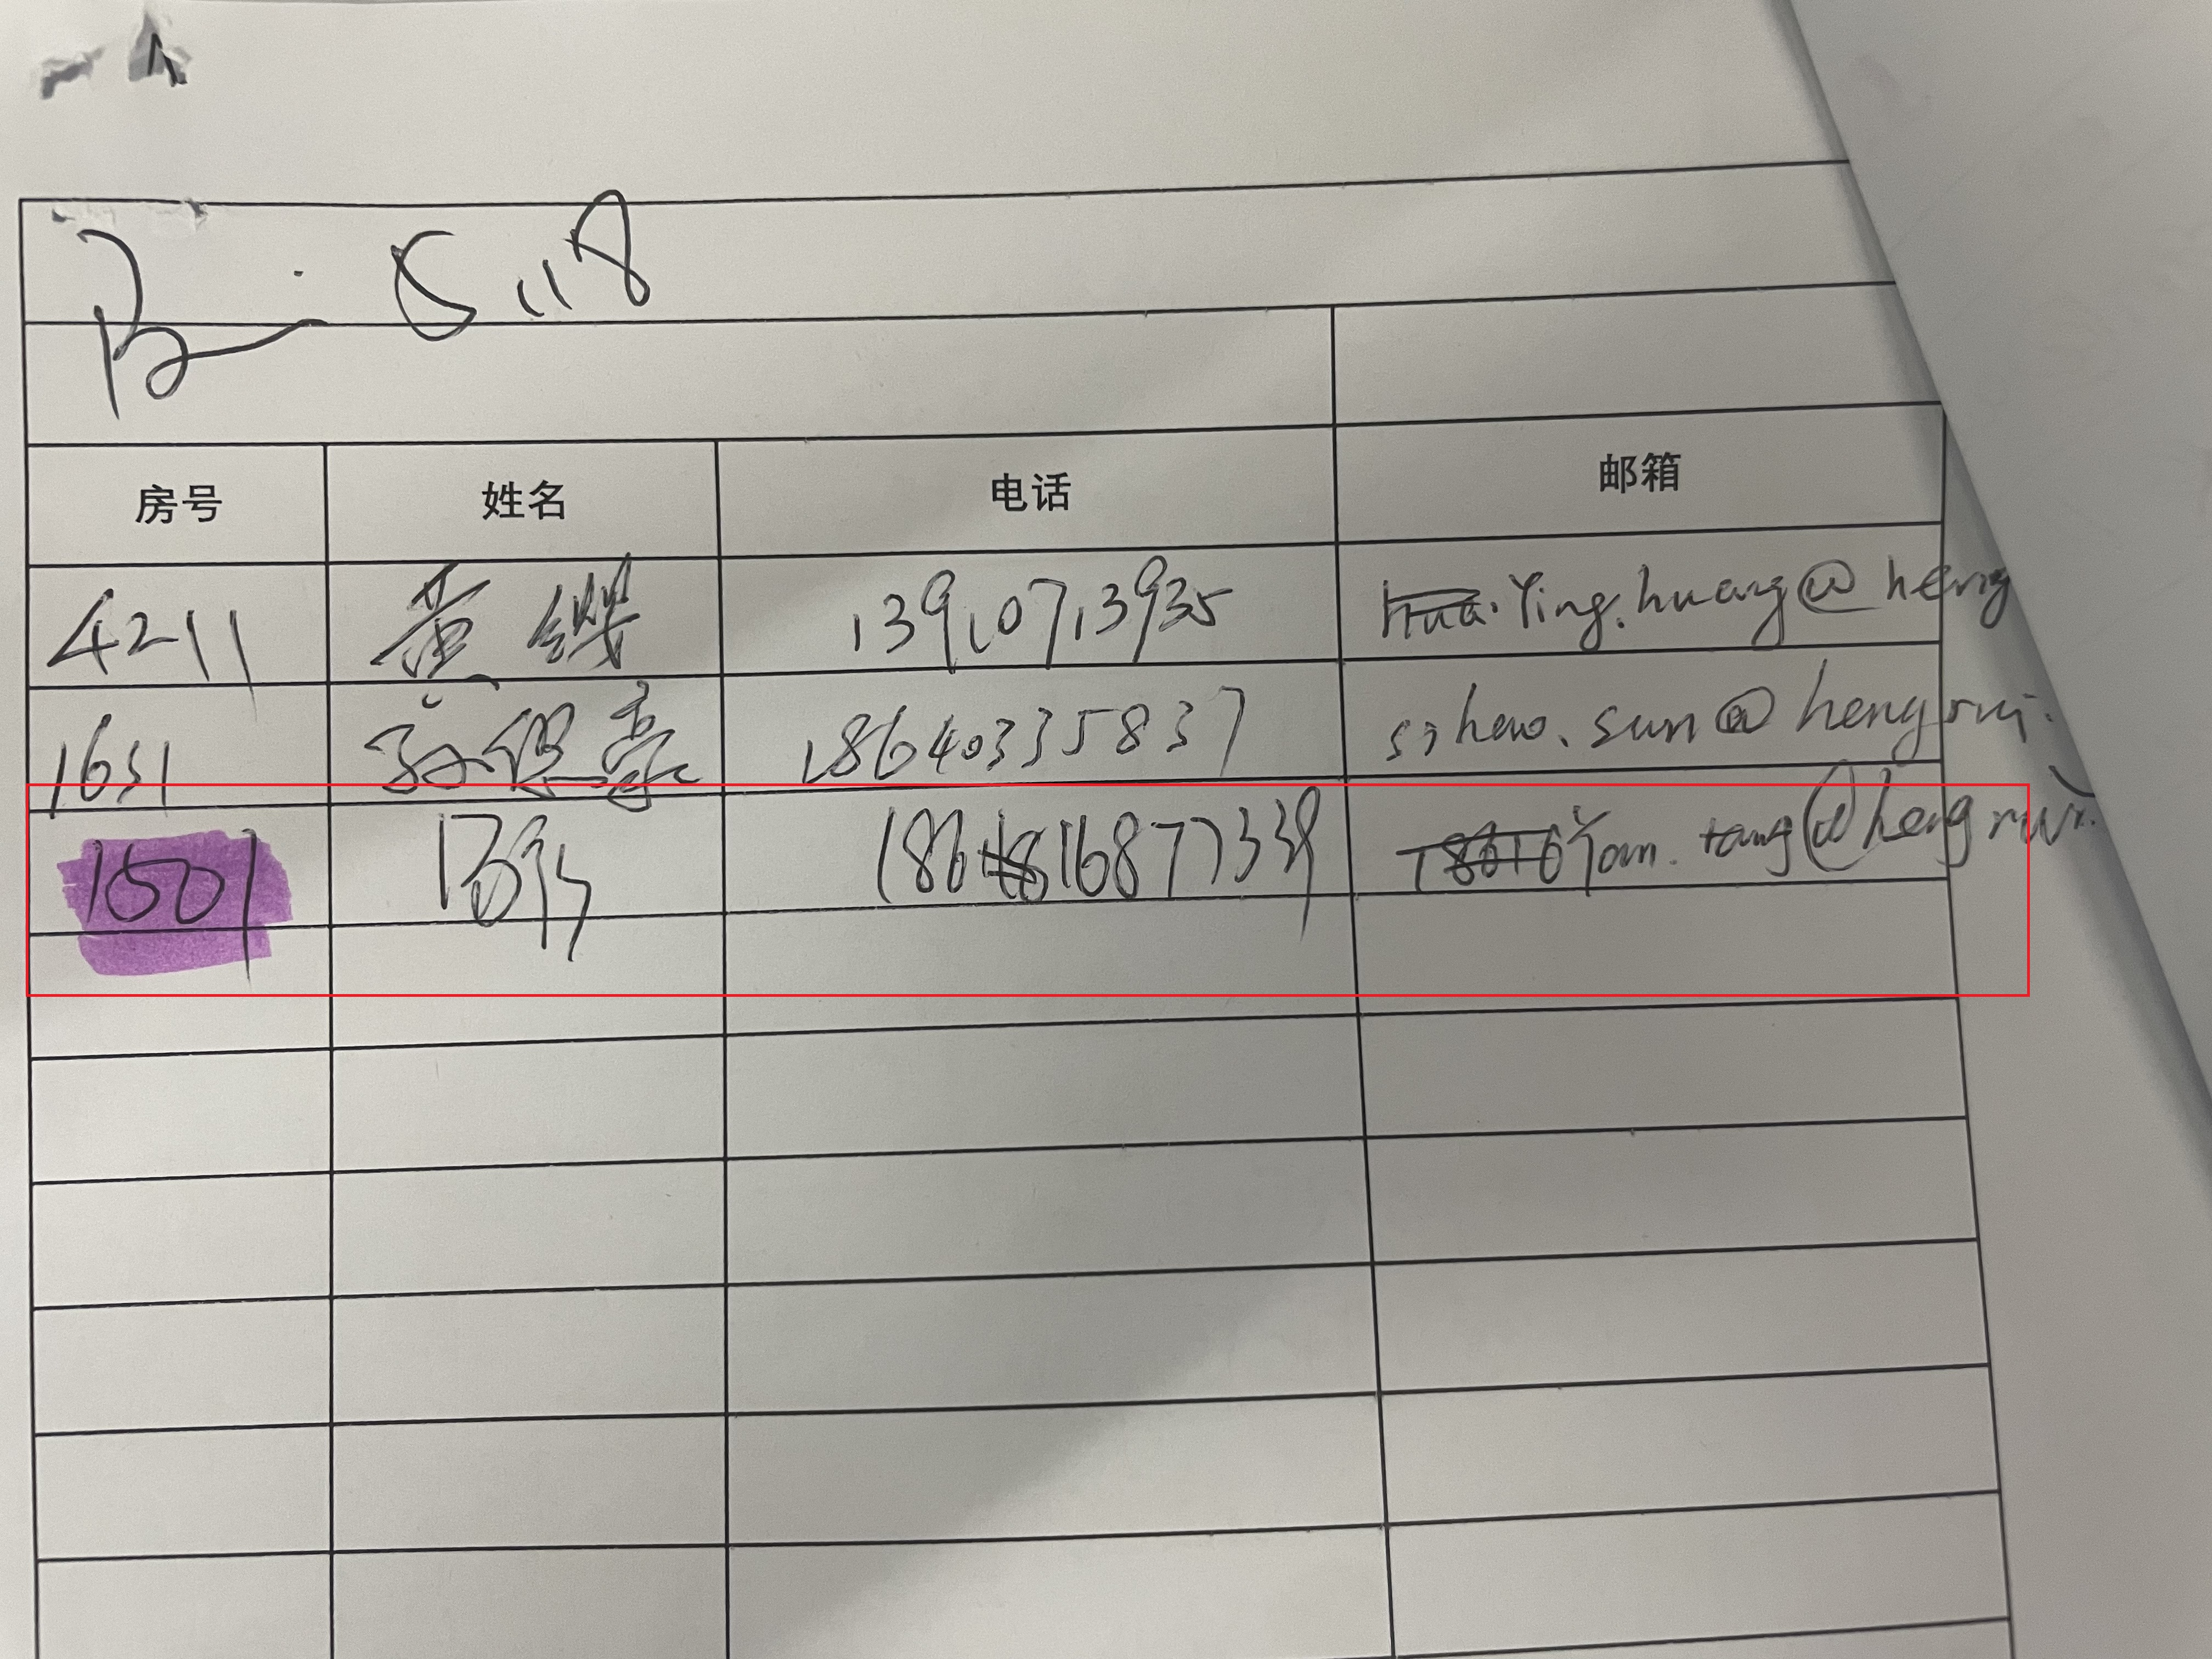 5.118
房号 姓名 电话 邮箱
4211 黄缨 13910713935 Hua. Ying.huang@heng
1631 孙偲豪 18640335837 sihao.sun@hengrui.
1501 18616877339 18616 Yan.tang@hengrui.